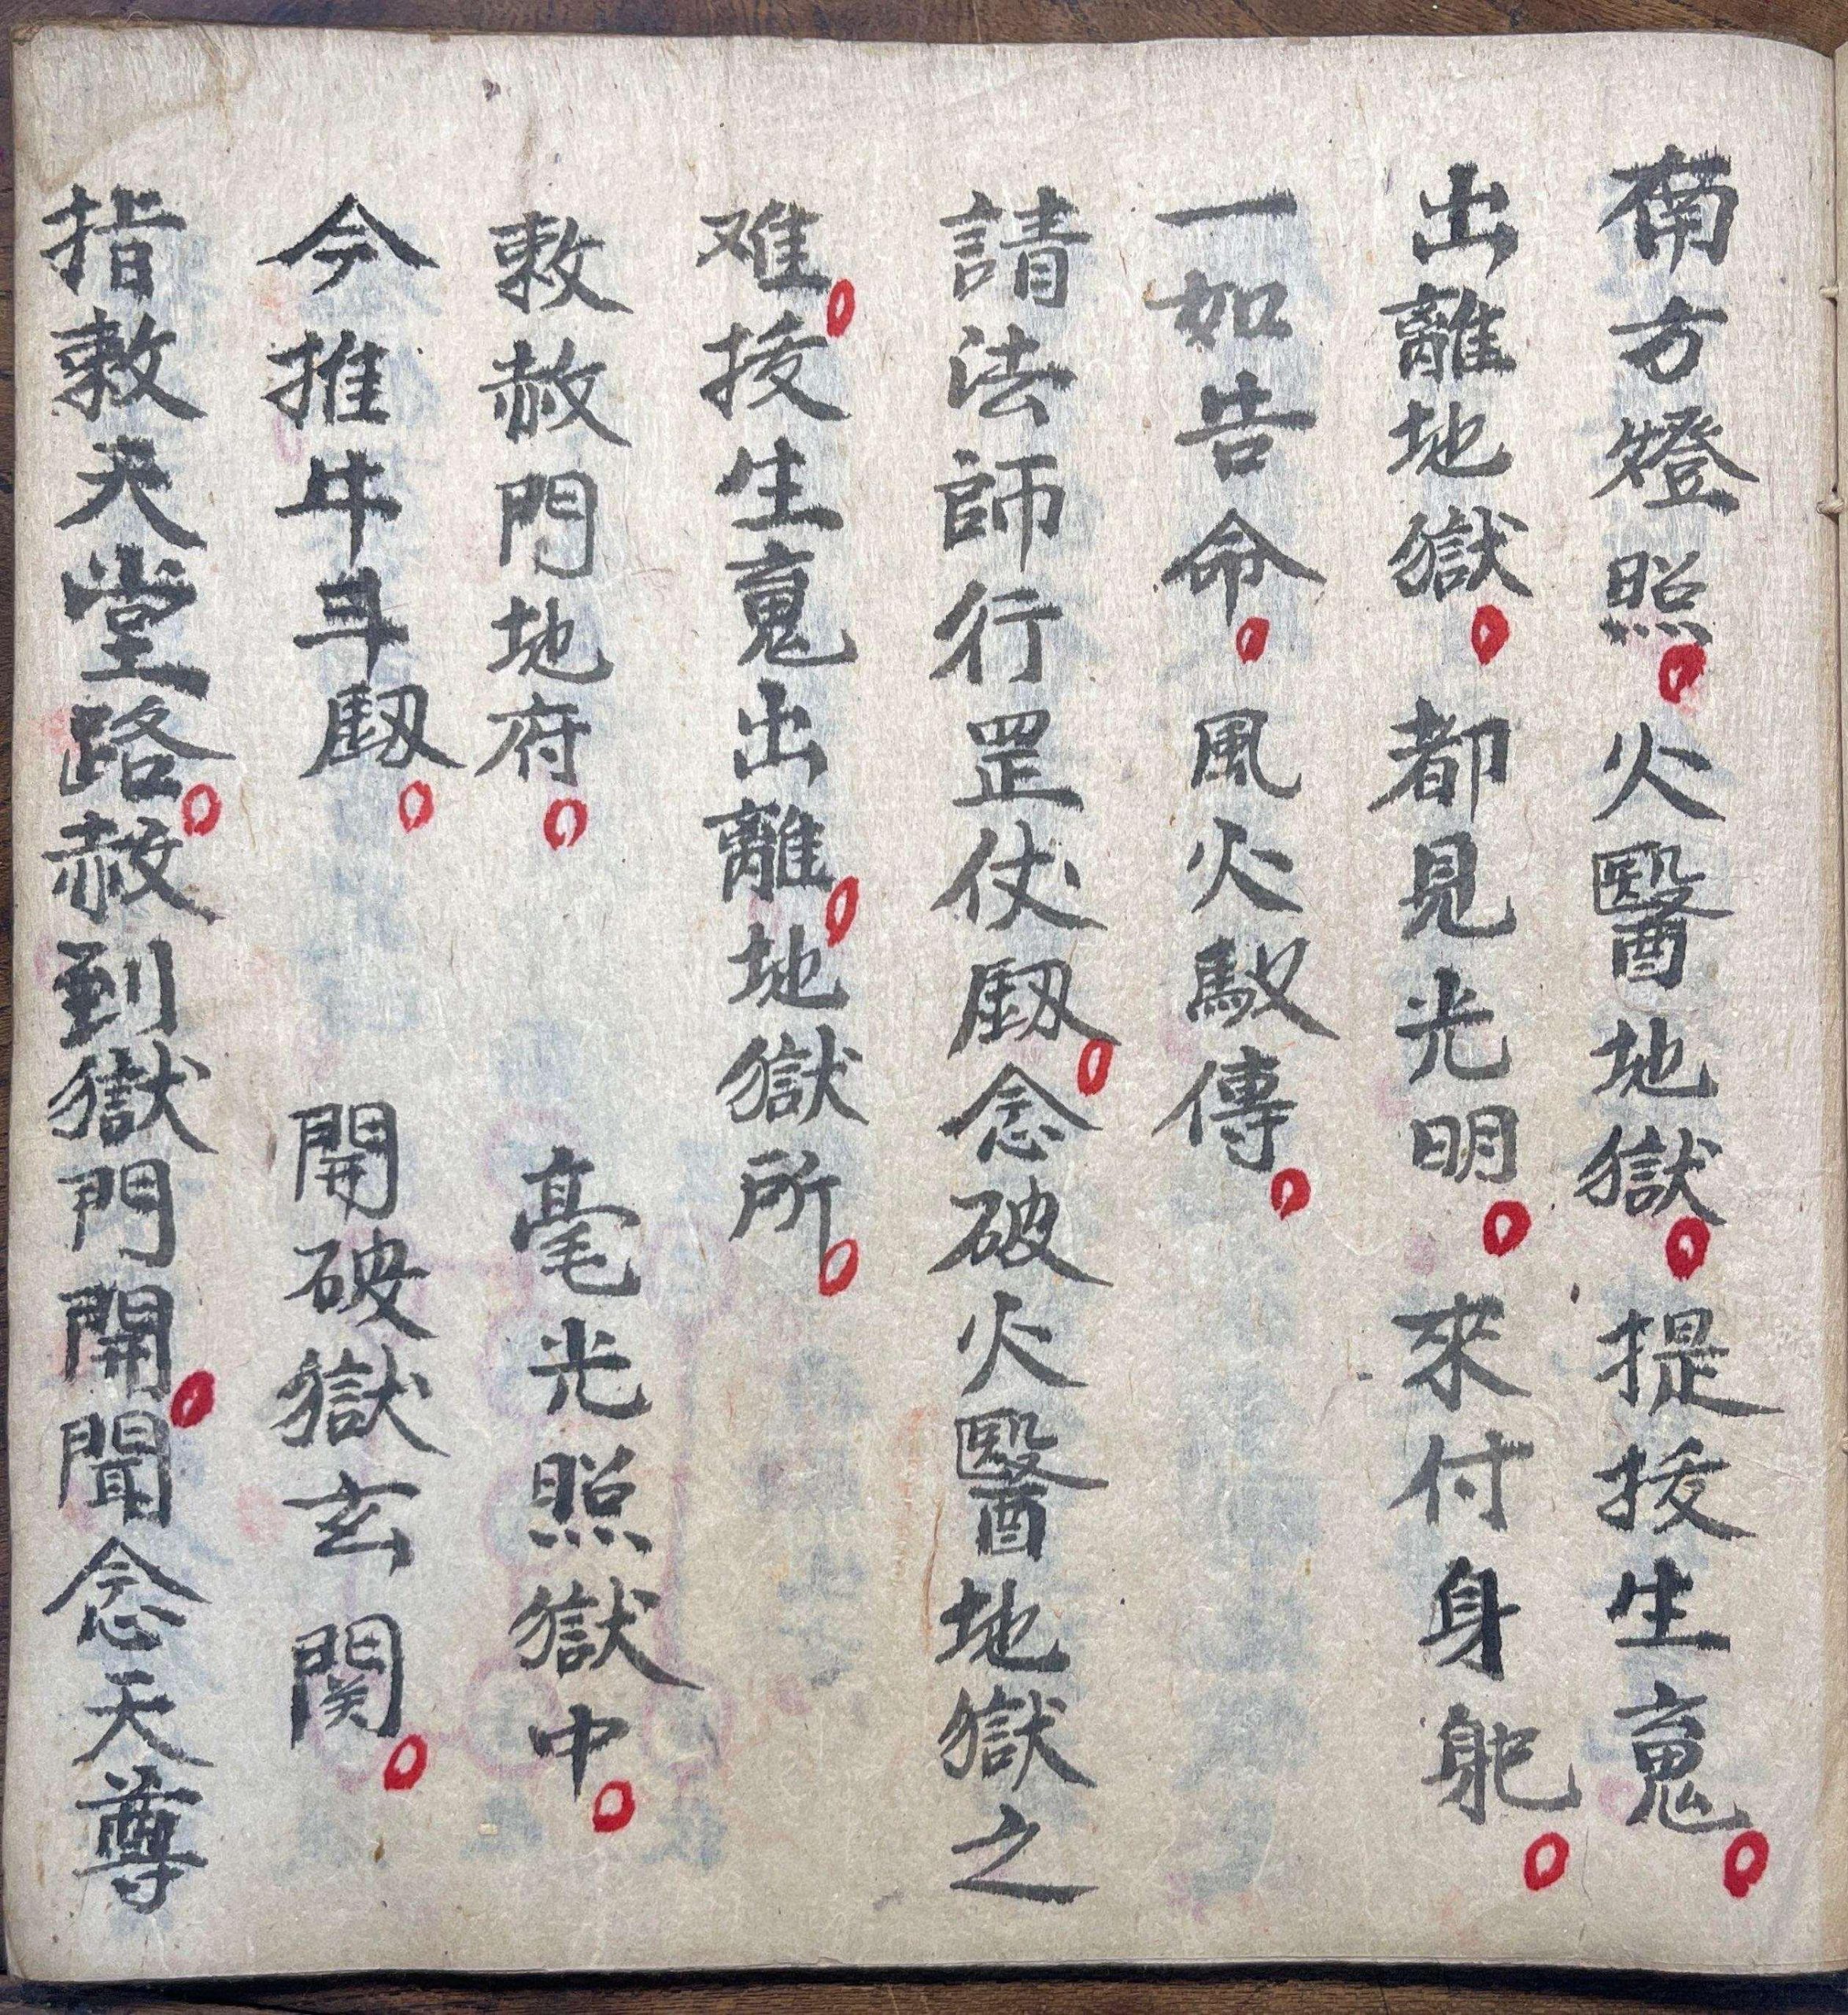 南方燈照。火醫地獄。提拔生䰟。
出離地獄。都見光明。來付身躰。
一如告命。風火馭傳。
請法師行罡仗劔。念破火醫地獄之
难。拔生䰟出離。地獄所。
敕赦門地府。毫光照獄中。
今推牛斗劔。開破獄玄関。
指敕天堂路。赦到獄門開。聞念天尊